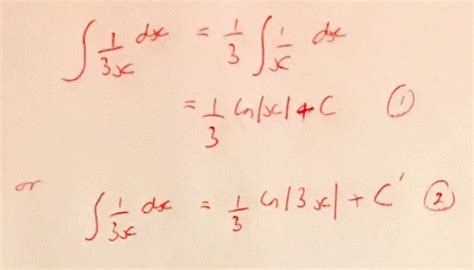 ∫ 1/3x dx = 1/3 ∫ 1/x dx
= 1/3 ln|x| + C ①
or ∫ 1/3x dx = 1/3 ln|3x| + C' ②